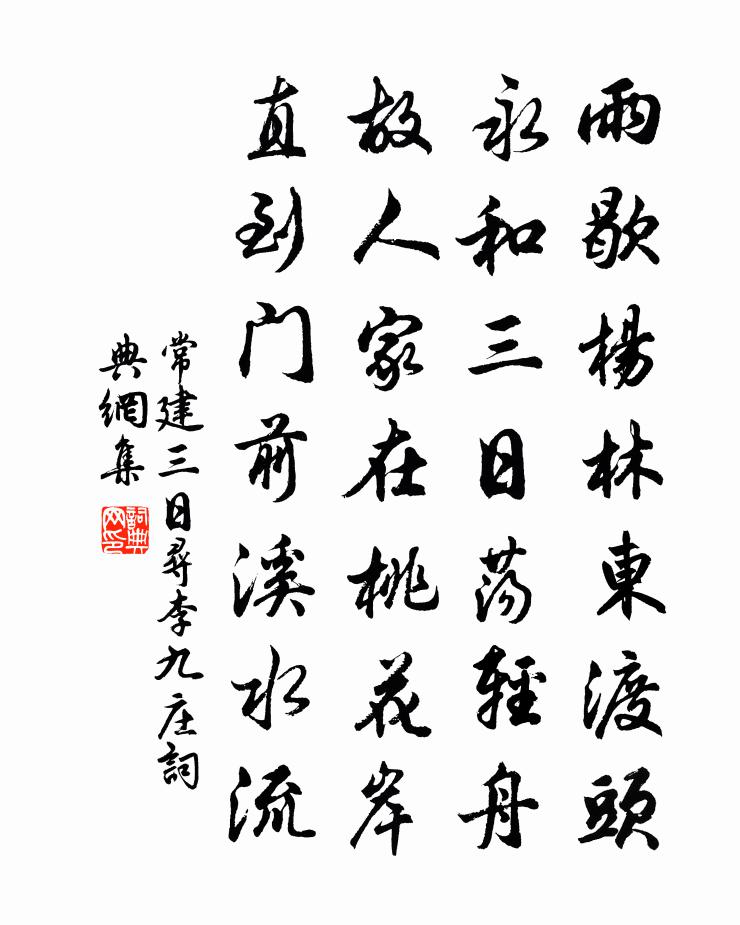 雨歇楊林東渡頭
永和三日荡輕舟
故人家在桃花岸
直到门前溪水流
常建三日尋李九庄詞
典網集
詞典网印